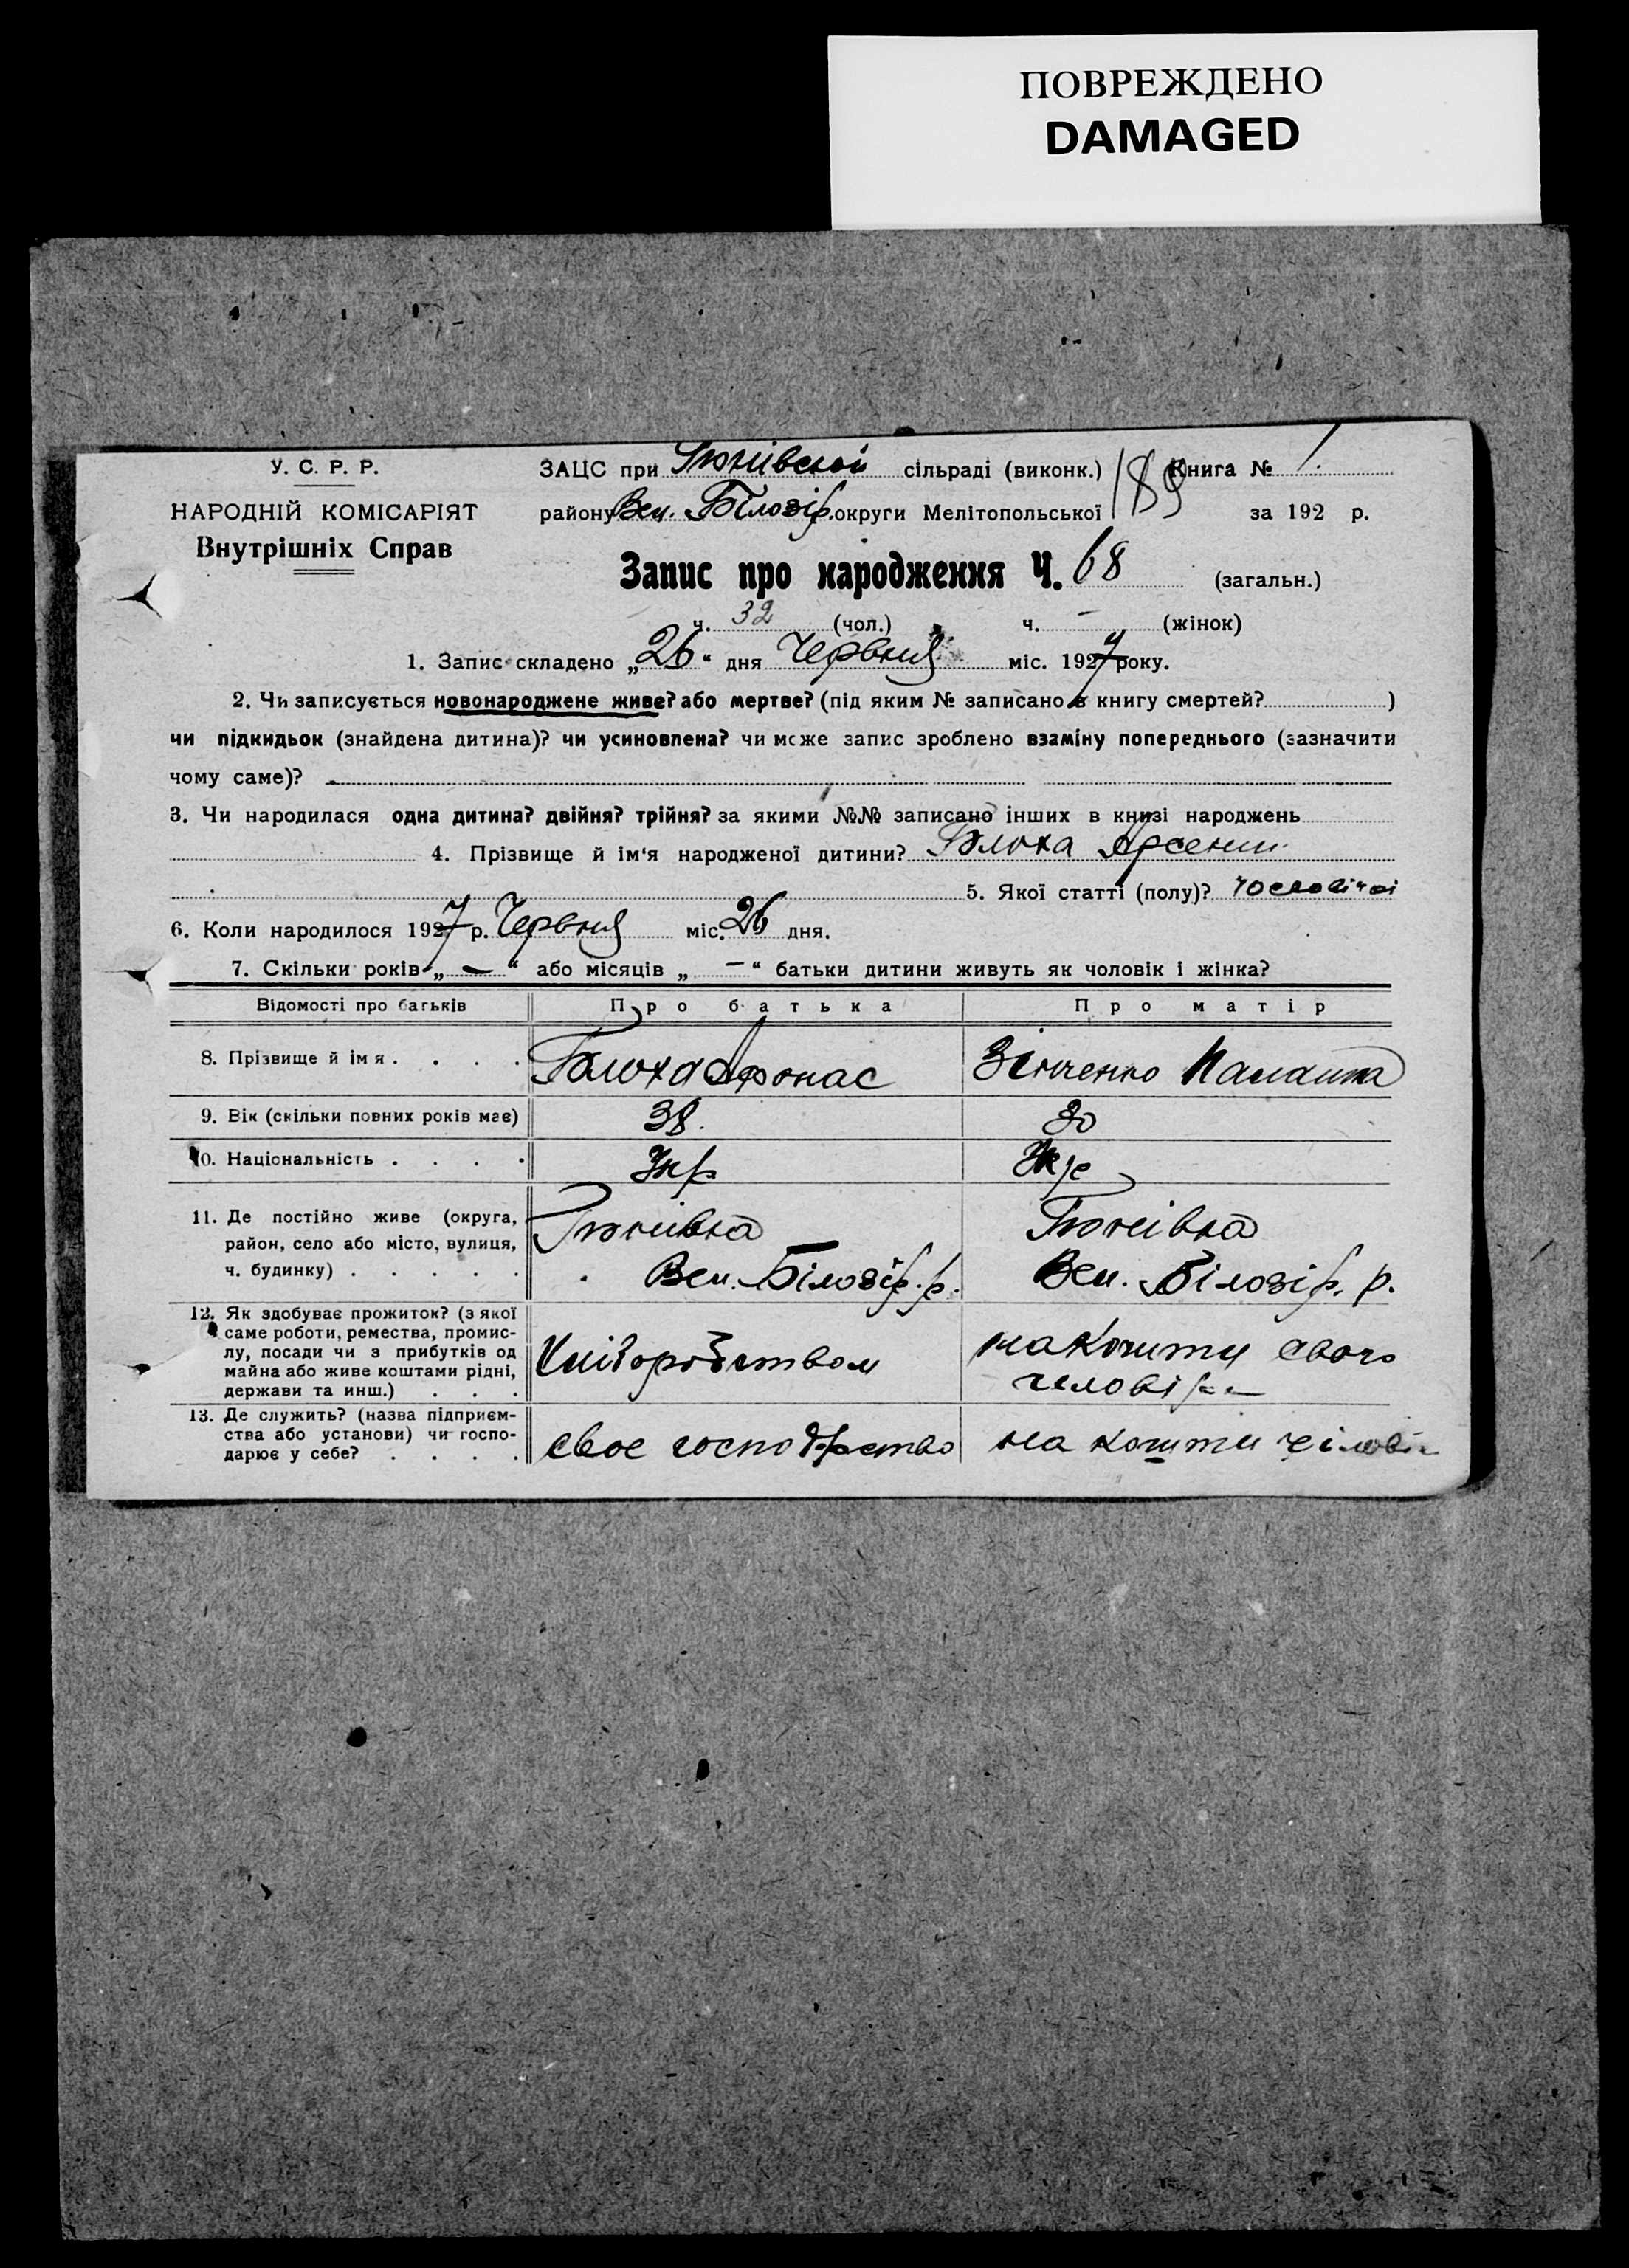 ПОВРЕЖДЕНО
DAMAGED
У. С. Р. Р.
НАРОДНІЙ КОМІСАРІЯТ
Внутрішніх Справ
ЗАЦС при сільраді (виконк.) 189 Книга № 1.
району Вел. Білозір. округи Мелітопольської за 192 р.
Запис про народження Ч. 68 (загальн.)
ч. 32 (чол.) ч. - (жінок)
1. Запис складено „26“ дня Червня міс. 1927 року.
2. Чи записується новонароджене живе? або мертве? (під яким № записано в книгу смертей? )
чи підкидьок (знайдена дитина)? чи усиновлена? чи може запис зроблено взаміну попереднього (зазначити
чому саме)?
3. Чи народилася одна дитина? двійня? трійня? за якими №№ записано інших в книзі народжень
4. Прізвище й ім'я народженої дитини? Блоха Арсений
5. Якої статті (полу)?
6. Коли народилося 1927 р. Червня міс. 26 дня.
7. Скільки років „ — “ або місяців „ — “ батьки дитини живуть як чоловік і жінка?
Відомості про батьків Про батька Про матір
8. Прізвище й імя . . . . Блоха Афонас Зінченко Палашка
9. Вік (скільки повних років має) 38. 30
10. Національність . . . . Укр Укр
11. Де постійно живе (округа,
район, село або місто, вулиця,
ч. будинку) . . . . . Вел. Білозір. р. Вел. Білозір. р.
12. Як здобуває прожиток? (з якої
саме роботи, ремества, промис-
лу, посади чи з прибутків од
майна або живе коштами рідні,
держави та инш.) . . . Хліборобством на кошти свого
13. Де служить? (назва підприєм-
ства або установи) чи госпо-
дарює у себе? . . . . свое господарство на кошти